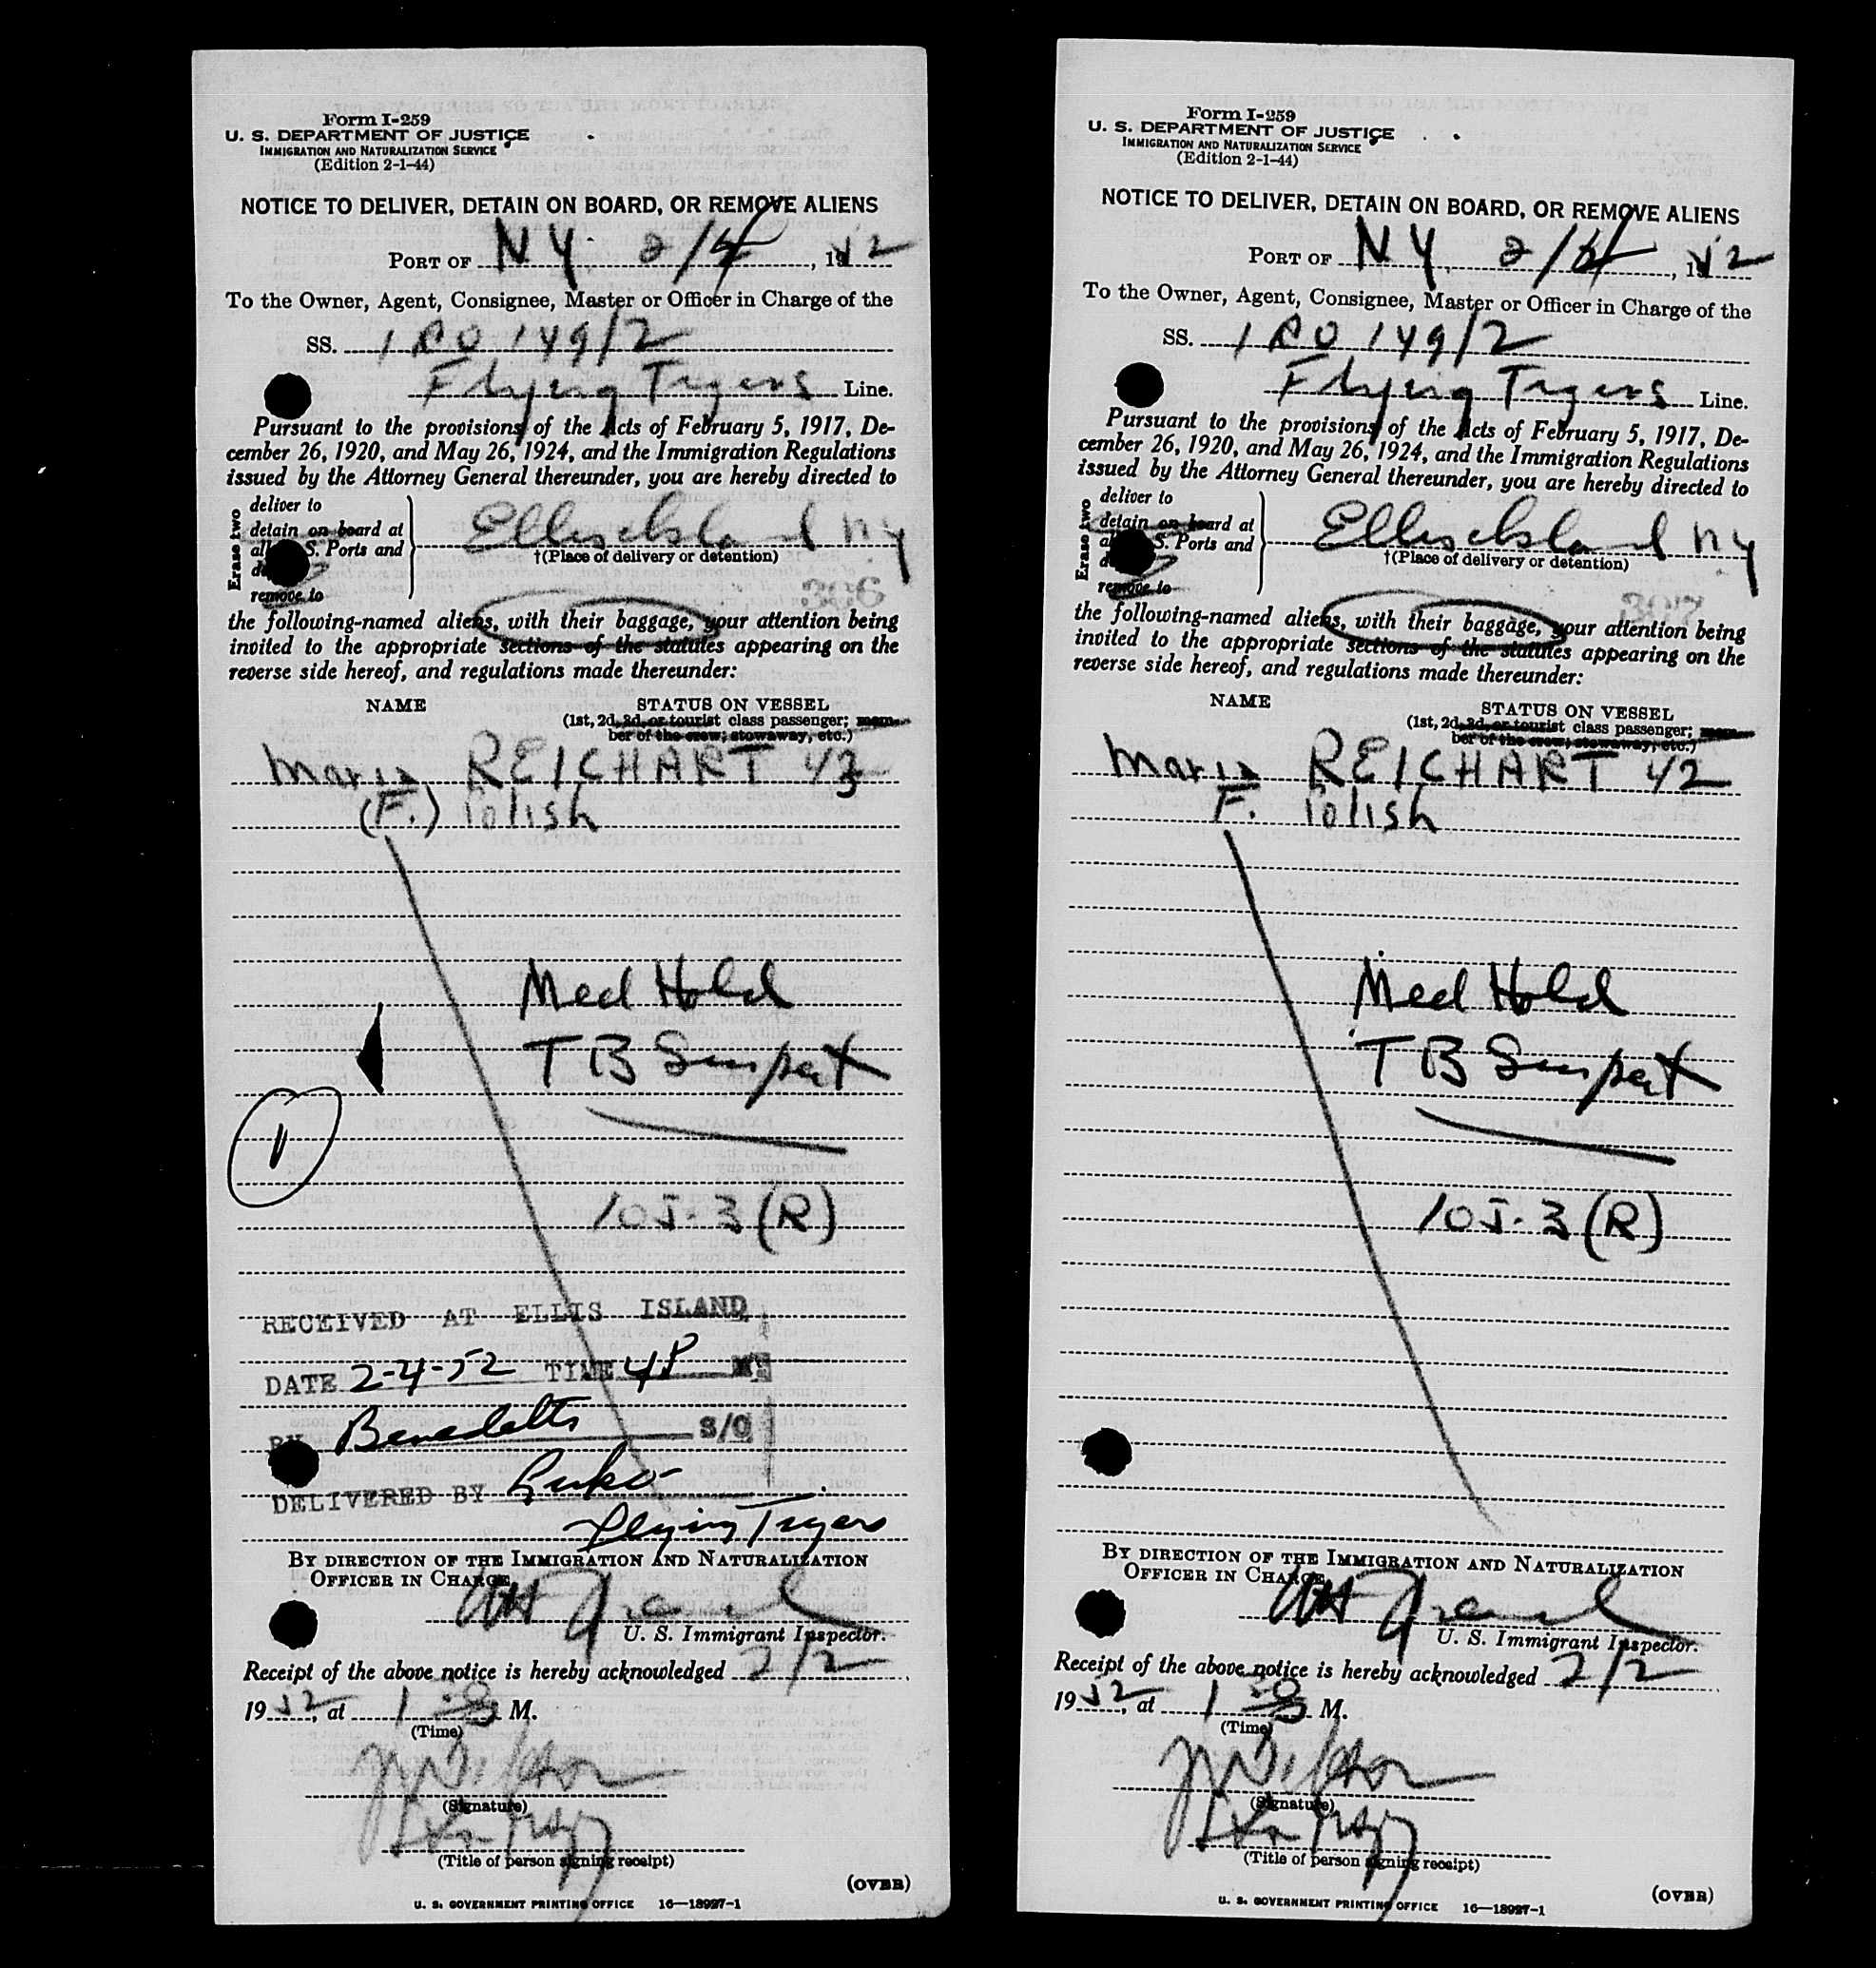 Form I-259
U. S. DEPARTMENT OF JUSTICE
IMMIGRATION AND NATURALIZATION SERVICE
(Edition 2-1-44)
NOTICE TO DELIVER, DETAIN ON BOARD, OR REMOVE ALIENS
PORT OF NY 2/4, 1952
To the Owner, Agent, Consignee, Master or Officer in Charge of the
SS. 1 RO 149/2
Flying Tigers Line.
Pursuant to the provisions of the Acts of February 5, 1917, De-
cember 26, 1920, and May 26, 1924, and the Immigration Regulations
issued by the Attorney General thereunder, you are hereby directed to
Erase two
deliver to
detain on board at
all S. Ports and
remove to
Ellis Island NY
†(Place of delivery or detention)
386
the following-named aliens, with their baggage, your attention being
invited to the appropriate sections of the statutes appearing on the
reverse side hereof, and regulations made thereunder:
NAME STATUS ON VESSEL
(1st, 2d, 3d, or tourist class passenger; mem-
ber of the crew; stowaway, etc.)
Maria REICHART 43
(F.) Polish
Med Hold
TB Suspect
1
105-3 (R)
RECEIVED AT ELLIS ISLAND
DATE 2-4-52 TIME 4P M
BY Benedetto S/O
DELIVERED BY
Flying Tigers
BY DIRECTION OF THE IMMIGRATION AND NATURALIZATION
OFFICER IN CHARGE
U. S. Immigrant Inspector.
Receipt of the above notice is hereby acknowledged 2/2
1952, at 1 30 M.
(Time)
(Signature)
(Title of person signing receipt)
(OVER)
U. S. GOVERNMENT PRINTING OFFICE 16—18927-1
Form I-259
U. S. DEPARTMENT OF JUSTICE
IMMIGRATION AND NATURALIZATION SERVICE
(Edition 2-1-44)
NOTICE TO DELIVER, DETAIN ON BOARD, OR REMOVE ALIENS
PORT OF NY 2/4, 1952
To the Owner, Agent, Consignee, Master or Officer in Charge of the
SS. 1 RO 149/2
Flying Tigers Line.
Pursuant to the provisions of the Acts of February 5, 1917, De-
cember 26, 1920, and May 26, 1924, and the Immigration Regulations
issued by the Attorney General thereunder, you are hereby directed to
Erase two
deliver to
detain on board at
S. Ports and
remove to
Ellis Island NY
†(Place of delivery or detention)
387
the following-named aliens, with their baggage, your attention being
invited to the appropriate sections of the statutes appearing on the
reverse side hereof, and regulations made thereunder:
NAME STATUS ON VESSEL
(1st, 2d, 3d, or tourist class passenger; mem-
ber of the crew; stowaway, etc.)
Maria REICHART 42
F. Polish
Med Hold
TB Suspect
105-3 (R)
BY DIRECTION OF THE IMMIGRATION AND NATURALIZATION
OFFICER IN CHARGE
U. S. Immigrant Inspector.
Receipt of the above notice is hereby acknowledged 2/2
1952, at 1 30 M.
(Time)
(Signature)
(Title of person signing receipt)
(OVER)
U. S. GOVERNMENT PRINTING OFFICE 16—18927-1